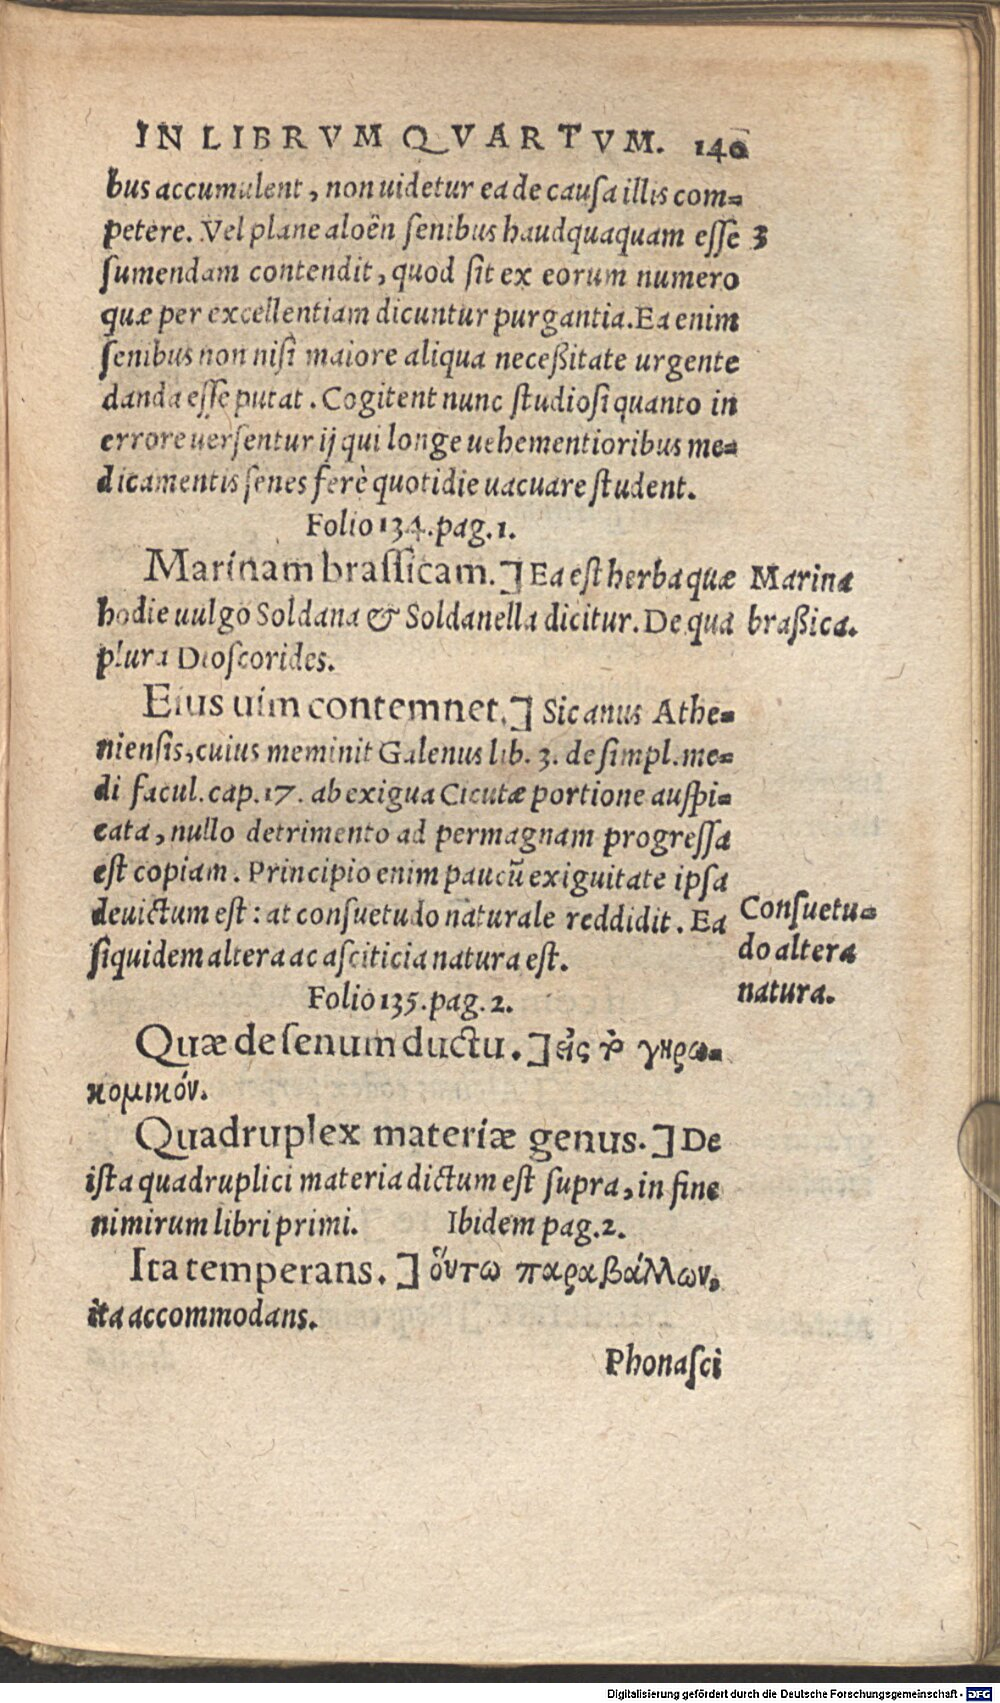 IN LIBRVM QVARTVM. 140
bus accumulent, non uidetur ea de causa illis com=
petere. Vel plane aloën senibus haudquaquam esse 3
sumendam contendit, quod sit ex eorum numero
quæ per excellentiam dicuntur purgantia. Ea enim
senibus non nisi maiore aliqua neceßitate urgente
danda esse putat. Cogitent nunc studiosi quanto in
errore uersentur ij qui longe uehementioribus me=
dicamentis senes ferè quotidie uacuare student.
Folio 134. pag. 1.
Marinam brassicam.] Ea est herba quæ
Marina
hodie uulgo Soldana & Soldanella dicitur. De qua
braßica.
plura Dioscorides.
Eius uim contemnet.] Sic anus Athe=
niensis, cuius meminit Galenus lib. 3. de simpl. me=
di facul. cap. 17. ab exigua Cicutæ portione auspi=
cata, nullo detrimento ad permagnam progressa
est copiam. Principio enim paucũ exiguitate ipsa
deuictum est: at consuetudo naturale reddidit. Ea
Consuetu=
siquidem altera ac asciticia natura est.
do altera
natura.
Folio 135. pag. 2.
Quæ de senum ductu.] εἰς τὸ γηρω=
κομικόν.
Quadruplex materiæ genus.] De
ista quadruplici materia dictum est supra, in fine
nimirum libri primi. Ibidem pag. 2.
Ita temperans.] ὅυτω παραβάλλων,
ita accommodans.
Phonasci
Digitalisierung gefördert durch die Deutsche Forschungsgemeinschaft - DFG